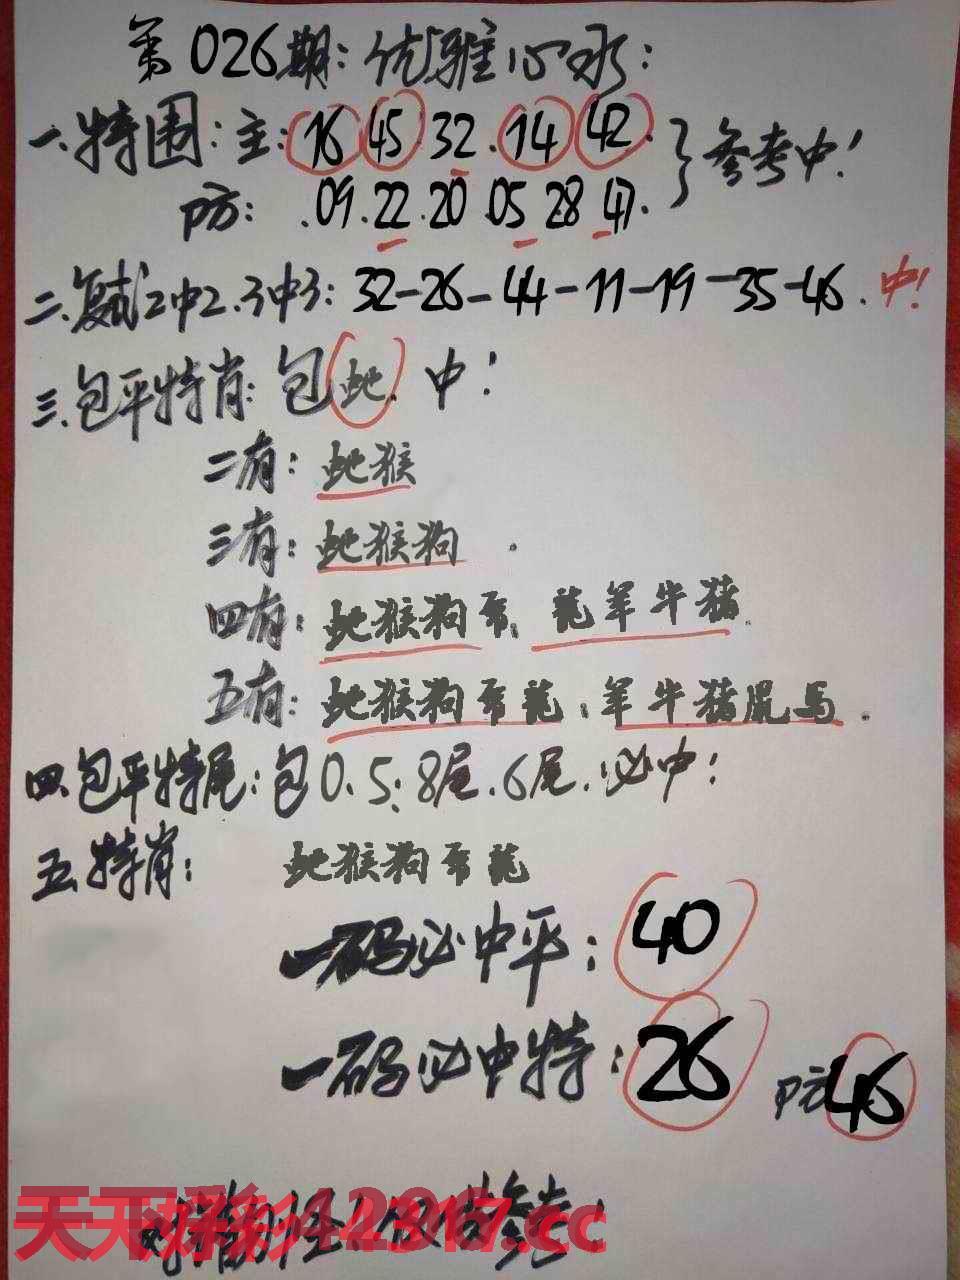 第026期:优雅心水:
一.特围:主:16 45 32.14 42.}参考中!
防:.09.22.20.05 28 47.
二.复试2中2.3中3:32-26-44-11-19-35-46.中!
三.包平特肖:包蛇.中!
二有:蛇猴
三有:蛇猴狗.
四有:蛇猴狗 龙羊牛猪
五有:蛇猴狗 龙:羊牛猪鼠马.
四.包平特尾:包0.5:8尾.6尾.必中!
五.特肖:蛇猴狗 龙
一码必中平:40
一码必中特:26 防46
天下彩.cc